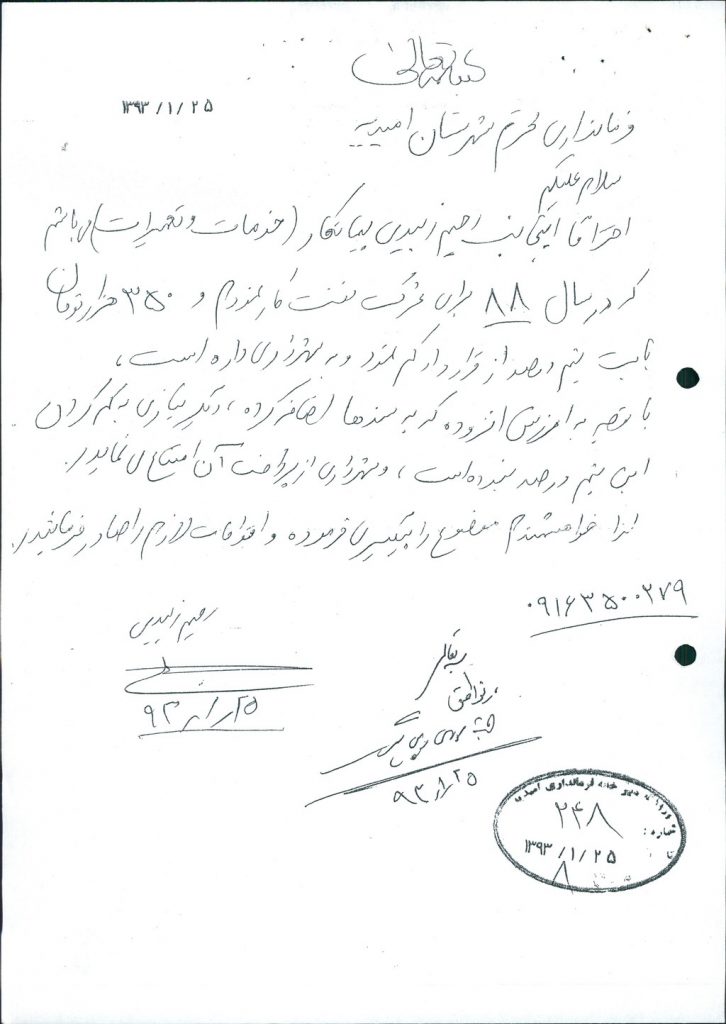 باسمه تعالی
۱۳۹۳/۱/۲۵
فرمانداری محترم شهرستان امیدیه
سلام علیکم
احتراماً اینجانب رحیم زبیدی پیمانکار (خدمات و تعمیرات) می باشم
که در سال ۸۸ برای شرکت نفت کار نمودم و ۳۵۰ هزار تومان
بابت نیم درصد از قرارداد کم نمود و به شهرداری داده است،
با توجه به ارزش افزوده که به سندها اضافه کرده، دیگر نیازی به کم کردن
این نیم درصد نبوده است، و شهرداری از پرداخت آن امتناع می نماید.
لذا خواهشمندم موضوع را پیگیری فرموده و اقدامات لازم را صادر فرمائید.
۰۹۱۶۳۵۰۰۲۷۹
رحیم زبیدی
۹۳/۱/۲۵
بسمه تعالی
۹۳/۱/۲۵
دبیرخانه فرمانداری امیدیه
شماره: ۲۴۸
۱۳۹۳/۱/۲۵